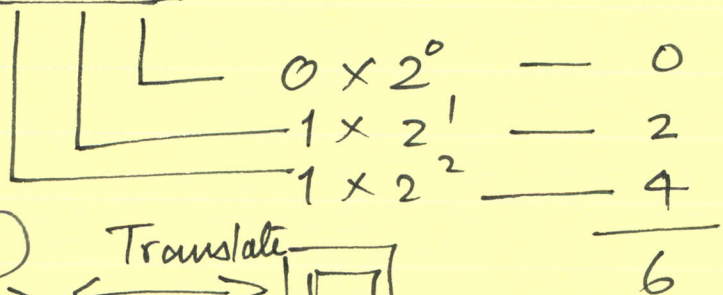 0 × 2⁰ — 0
1 × 2¹ — 2
1 × 2² — 4
Translate
6